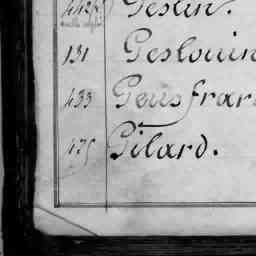 Geslin.
131 Geslouin
433 Geusfrar
475 Gilard.